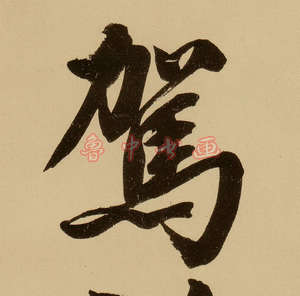 驾
鲁中书画